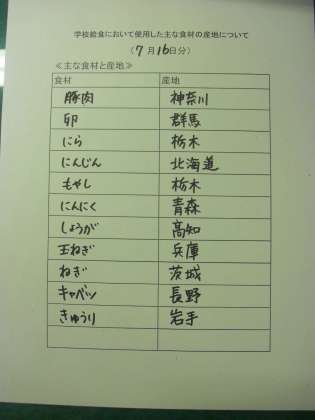 学校給食において使用した主な食材の産地について
(7月16日分)
≪主な食材と産地≫
食材 産地
豚肉 神奈川
卵 群馬
にら 栃木
にんじん 北海道
もやし 栃木
にんにく 青森
しょうが 高知
玉ねぎ 兵庫
ねぎ 茨城
キャベツ 長野
きゅうり 岩手